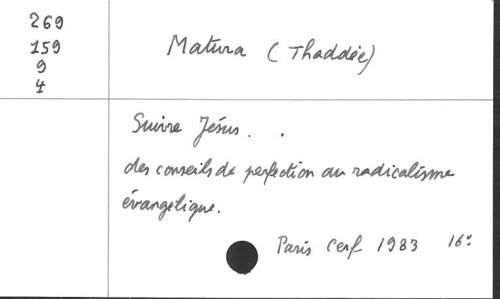 269
159
9
4
Matura (Thaddée)
Suivre Jésus.
des conseils de perfection au radicalisme
évangelique.
Paris Cerf 1983 16°